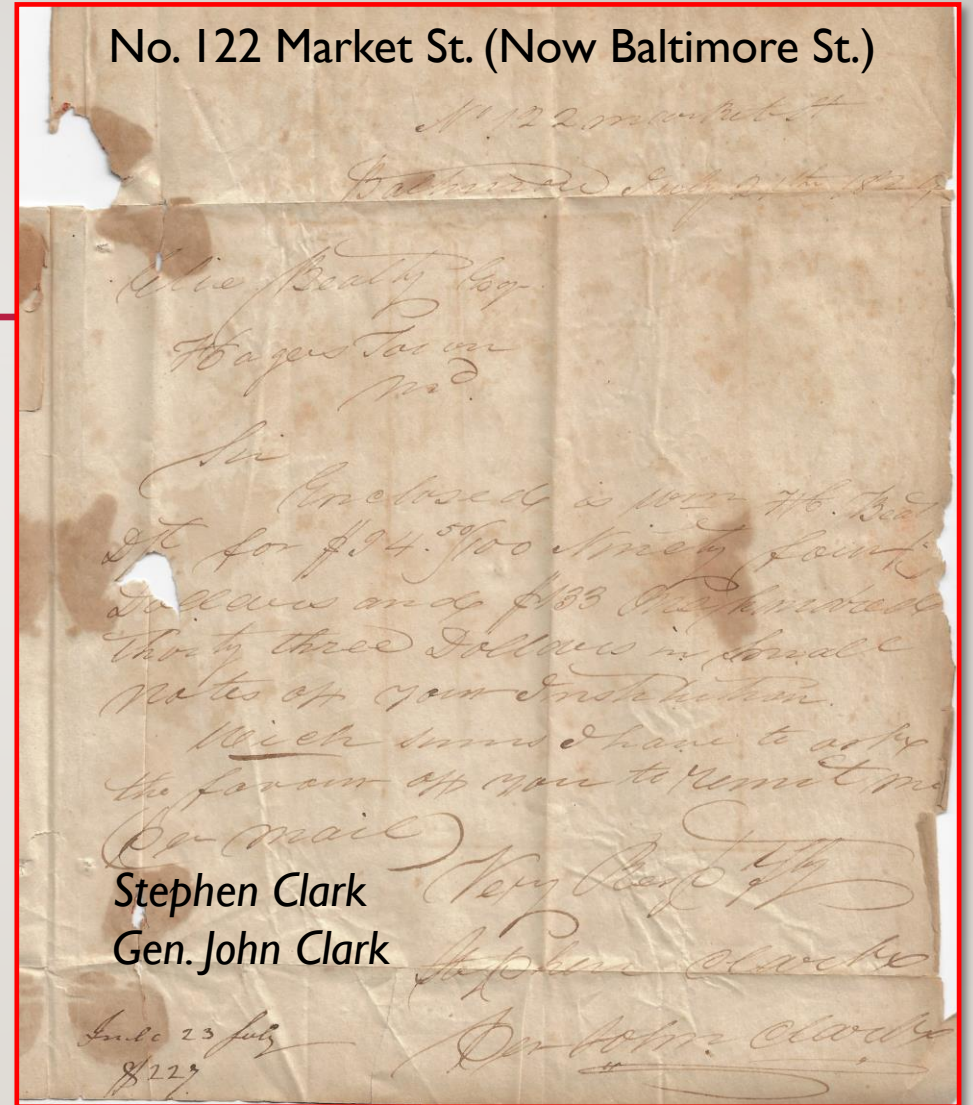 No. 122 Market St. (Now Baltimore St.)
No 122 market st
Baltimore July 21th 182
Elie Beatty Esqr.
Hagers Town
Md.
Sir
Enclosed is Wm H. Beat
Dft for $94.50/100 Ninety four
Dollars and $133 One hundred
Thirty three Dollars in Small
notes of your Institution.
Which sums I have to ask
the favour of you to remit me
Per mail
Very Respfly
Stephen Clark
Stephen Clark
Gen. John Clark
Per John Clark
23 July
$227